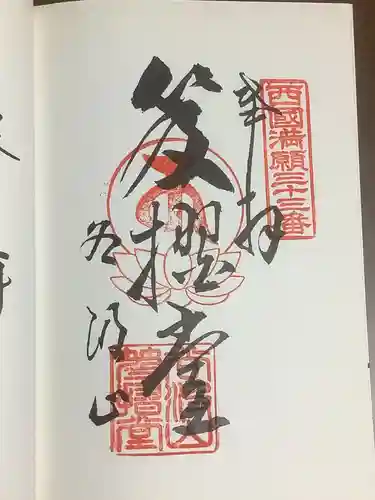 西國満願三十三番
奉拝
笈摺堂
谷汲山